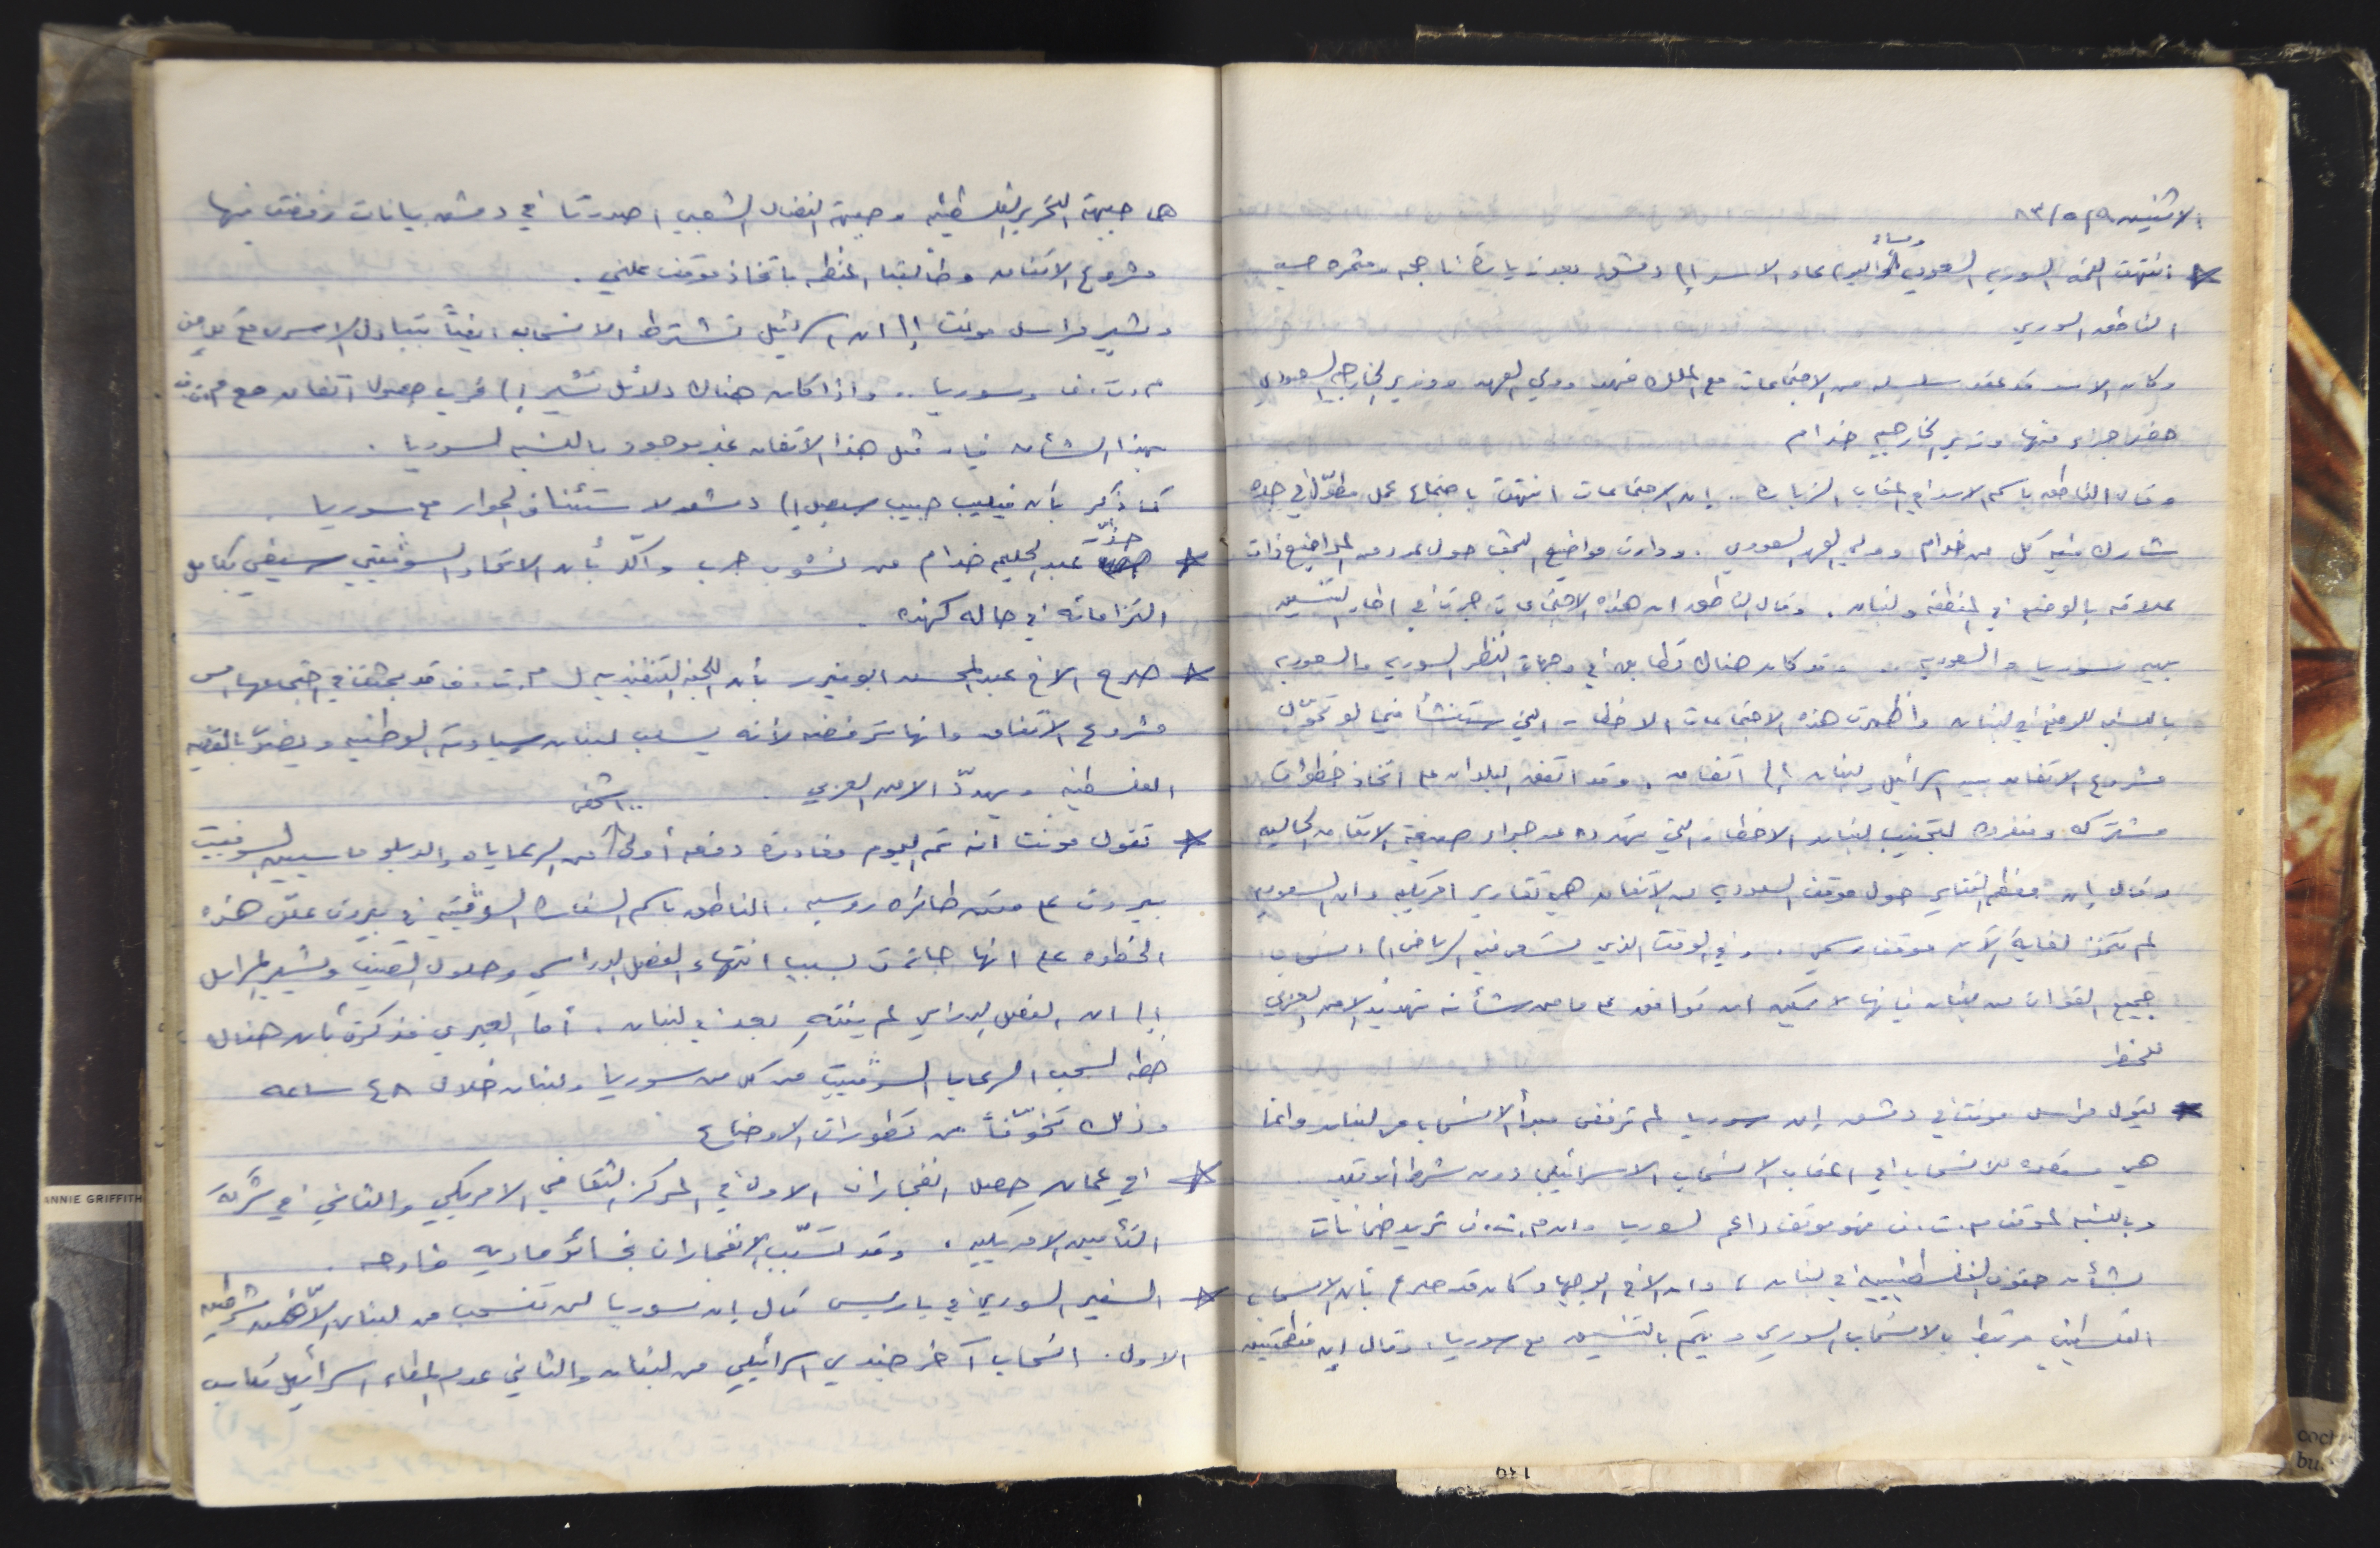 الاثنين ٩/٥/٨٣
* انتهت القمه السوريه السعوديه اليوم ومساء عاد الاسد إلى دمشق بعد زيارة ناجحه ومثمره حسب
الناطق السوري
وكان الاسد قد عقد سلسله من الاجتماعات مع الملك فهد وولي العهد ووزير الخارجيه السعودي
حضر جزء منها وزير الخارجيه خدام
وقال الناطق باسم الاسد في اعقاب الزياره. إن الاجتماعات انتهت باجتماع عمل مطوّل في جده
شارك فيه كل من خدام وولي العهد السعودي. ودارت مواضيع البحث حول عدد من المواضيع ذات
علاقه بالوضع في المنطقه ولبنان. وقال الناطق ان هذه الاجتماعات جرت في اطار التنسيق
بين سوريا والسعوديه .. وقد كان هناك تطابق في وجهات النظر السوريه والسعوديه
بالنسبه للوضع في لبنان وأظهرت هذه الاجتماعات الاخطار التي ستنشأ فيما لو تحوّل
مشروع الاتفاق بين اسرائيل ولبنان إلى اتفاق. وقد اتفق البلدان على اتخاذ خطوات
مشتركه ومنفرده لتجنيب لبنان الاخطار التي تهدده من جراء صيغة الاتفاق الحاليه
وقال إن معظم التقارير حول موقف السعوديه من الاتفاق هي تقارير امريكيه وان السعوديه
لم تتخذ لغاية الآن موقف رسمي .. وفي الوقت الذي تسعى فيه الرياض إلى انسحاب
جميع القوات من لبنان فإنها لا يمكن ان توافق على ما من شأنه تهديد الامن العربي
للخطر
* يقول مراسل مونت في دمشق إن سوريا لم ترفض مبدأ الانسحاب من لبنان وانما
هي مستعده للانسحاب في اعقاب الانسحاب الاسرائيلي دون شرط أو قيد.
وبالنسبه لموقف م.ت.ف فهو موقف داعم لسوريا وان م.ت.ف تريد ضمانات
بشأن حقوق الفلسطينيين في لبنان، وان الاخ ابو جهاد كان قد صرح بأن الانسحاب
الفلسطيني مرتبط بالانسحاب السوري ويتم بالتنسيق مع سوريا. وقال إن منظمتين
هما جبهة التحرير الفلسطينيه وجبهة النضال الشعبي اصدرتا في دمشق بيانات رفضت فيها
مشروع الاتفاق وطالبتا المنظمه باتخاذ موقف علني.
ويشير مراسل مونت إلى ان اسرائيل تشترط الانسحاب ايضاً بتبادل الاسرى مع كل من
م.ت.ف وسوريا .. واذا كان هناك دلائل تشير إلى قرب حصول اتفاق مع م.ت.ف
بهذا الشأن فان مثل هذا الاتفاق غير موجود بالنسبه لسوريا.
كما ذكر بأن فيليب حبيب سيصل إلى دمشق لاستئناف الحوار مع سوريا.
* حذّر عبد الحليم خدام من نشوب حرب واكّد بأن الاتحاد السوڤيتي سيفي بكامل
التزاماته في حاله كهذه.
* صرح الاخ عبد المحسن ابو ميزر بأن اللجنه التنفيذيه ل م.ت.ف قد بحثت في اجتماعها امس
مشروع الاتفاق وانها ترفضه لأنه يسلب لبنان سيادته الوطنيه ويضرّ بالقضيه
الفلسطينيه ويهدّد الامن العربي.
* تقول مونت انه تم اليوم مغادرة دفعه أولى ..شخص من الرعايا والدبلوماسيين السوفييت
بيروت على متن طائره روسيه. الناطق باسم السفاره السوڤيتيه في بيروت علّق هذه
الخطوه على انها جاءت بسبب انتهاء الفصل الدراسي وحلول الصيف ويشير المراسل
إلى ان الفصل الدراسي لم ينتهِ بعد في لبنان. أما العبري فذكرت بأن هناك
خطه لسحب الرعايا السوڤييت من كل من سوريا ولبنان خلال ٤٨ ساعه
وذلك تخوّفاً من تطورات الاوضاع
* في عمان حصل انفجاران الاول في المركز الثقافي الامريكي والثاني في شركة
التأمين الامريكيه. وقد تسبّب الانفجاران بخسائر ماديه فادحه.
* السفير السوري في باريس قال إن سوريا لن تنسحب من لبنان الاّ ضمن شرطين
الاول. انسحاب آخر جندي اسرائيلي من لبنان والثاني عدم اعطاء اسرائيل مكاسب
ANNIE GRIFFITH